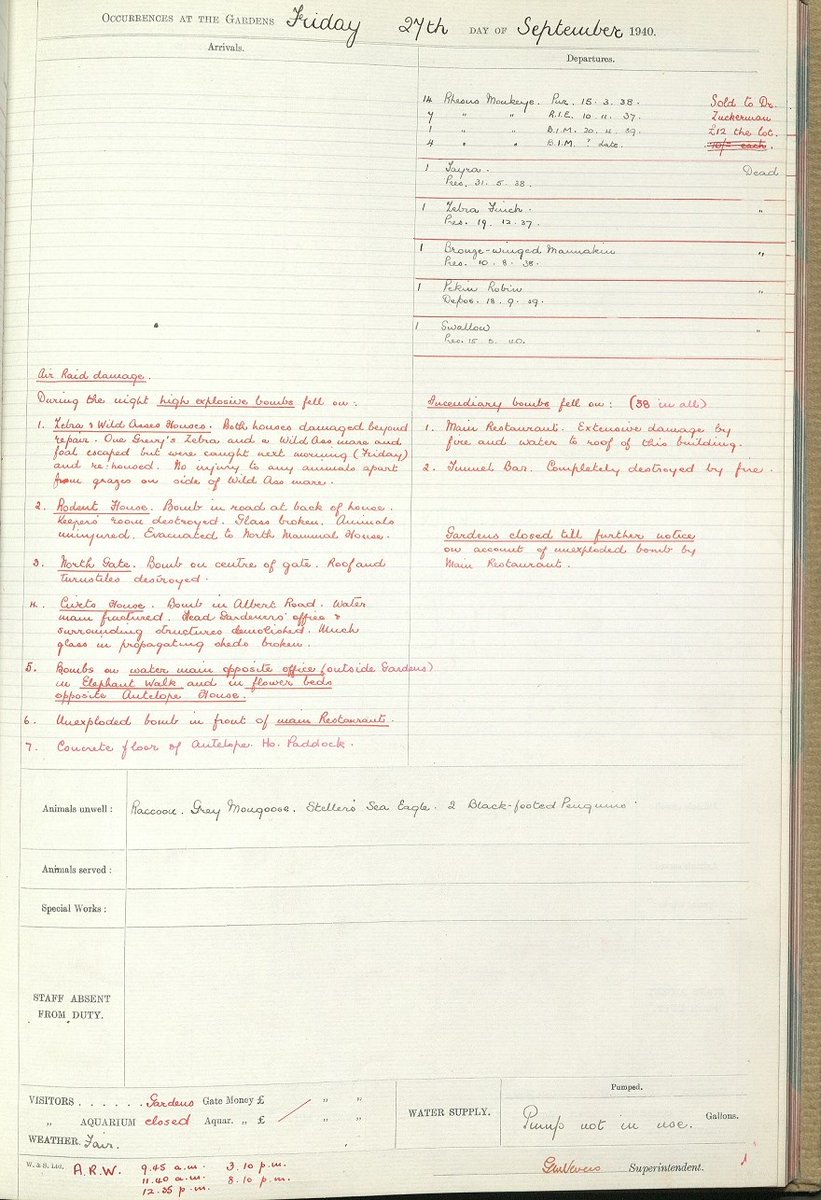 OCCURRENCES AT THE GARDENS Friday 27th DAY OF September 1940.
Arrivals.
Departures.
14 Rhesus Monkeys. Pur. 15. 3. 38. Sold to Dr.
7 " " R.I.E. 10. 11. 37. Zuckerman
1 " " B.I.M. 20. 11. 39. £12 the lot.
4 " " B.I.M. ? date. 10/= each.
1 Tayra. Dead
Pres. 31. 5. 38.
1 Zebra Finch. "
Pres. 19. 12. 37.
1 Bronze-winged Mannakin "
Pres. 10. 8. 38.
1 Pekin Robin "
Depos. 18. 9. 39.
1 Swallow "
Pres. 15. 5. 40.
Air Raid damage.
During the night high explosive bombs fell on:
1. Zebra & Wild Asses Houses. Both houses damaged beyond
repair. One Grevy's Zebra and a Wild Ass mare and
foal escaped but were caught next morning (Friday)
and re-housed. No injury to any animals apart
from grazes on side of Wild Ass mare.
2. Rodent House. Bomb in road at back of house.
Keepers' room destroyed. Glass broken. Animals
uninjured. Evacuated to North Mammal House.
3. North Gate. Bomb on centre of gate. Roof and
turnstiles destroyed.
4. Civets House. Bomb in Albert Road. Water
main fractured. Head Gardeners' office &
surrounding structures demolished. Much
glass in propagating sheds broken.
5. Bombs on water main opposite office (outside Gardens)
in Elephant Walk and in flower beds
opposite Antelope House.
6. Unexploded bomb in front of main Restaurant.
7. Concrete floor of Antelope Ho. Paddock.
Incendiary bombs fell on: (38 in all)
1. Main Restaurant. Extensive damage by
fire and water to roof of this building.
2. Tunnel Bar. Completely destroyed by fire.
Gardens closed till further notice
on account of unexploded bomb by
Main Restaurant.
Animals unwell: Raccoon. Grey Mongoose. Steller's Sea Eagle. 2 Black-footed Penguins.
Animals served:
Special Works:
STAFF ABSENT
FROM DUTY.
VISITORS . . . . . . Gardens Gate Money £ " "
" AQUARIUM closed Aquar. " £ " "
WEATHER. Fair.
WATER SUPPLY.
Pumped.
Pump not in use. Gallons.
W. & S. Ltd. A.R.W. 9.45 a.m. 3.10 p.m.
11.40 a.m. 8.10 p.m.
12.35 p.m.
Superintendent.